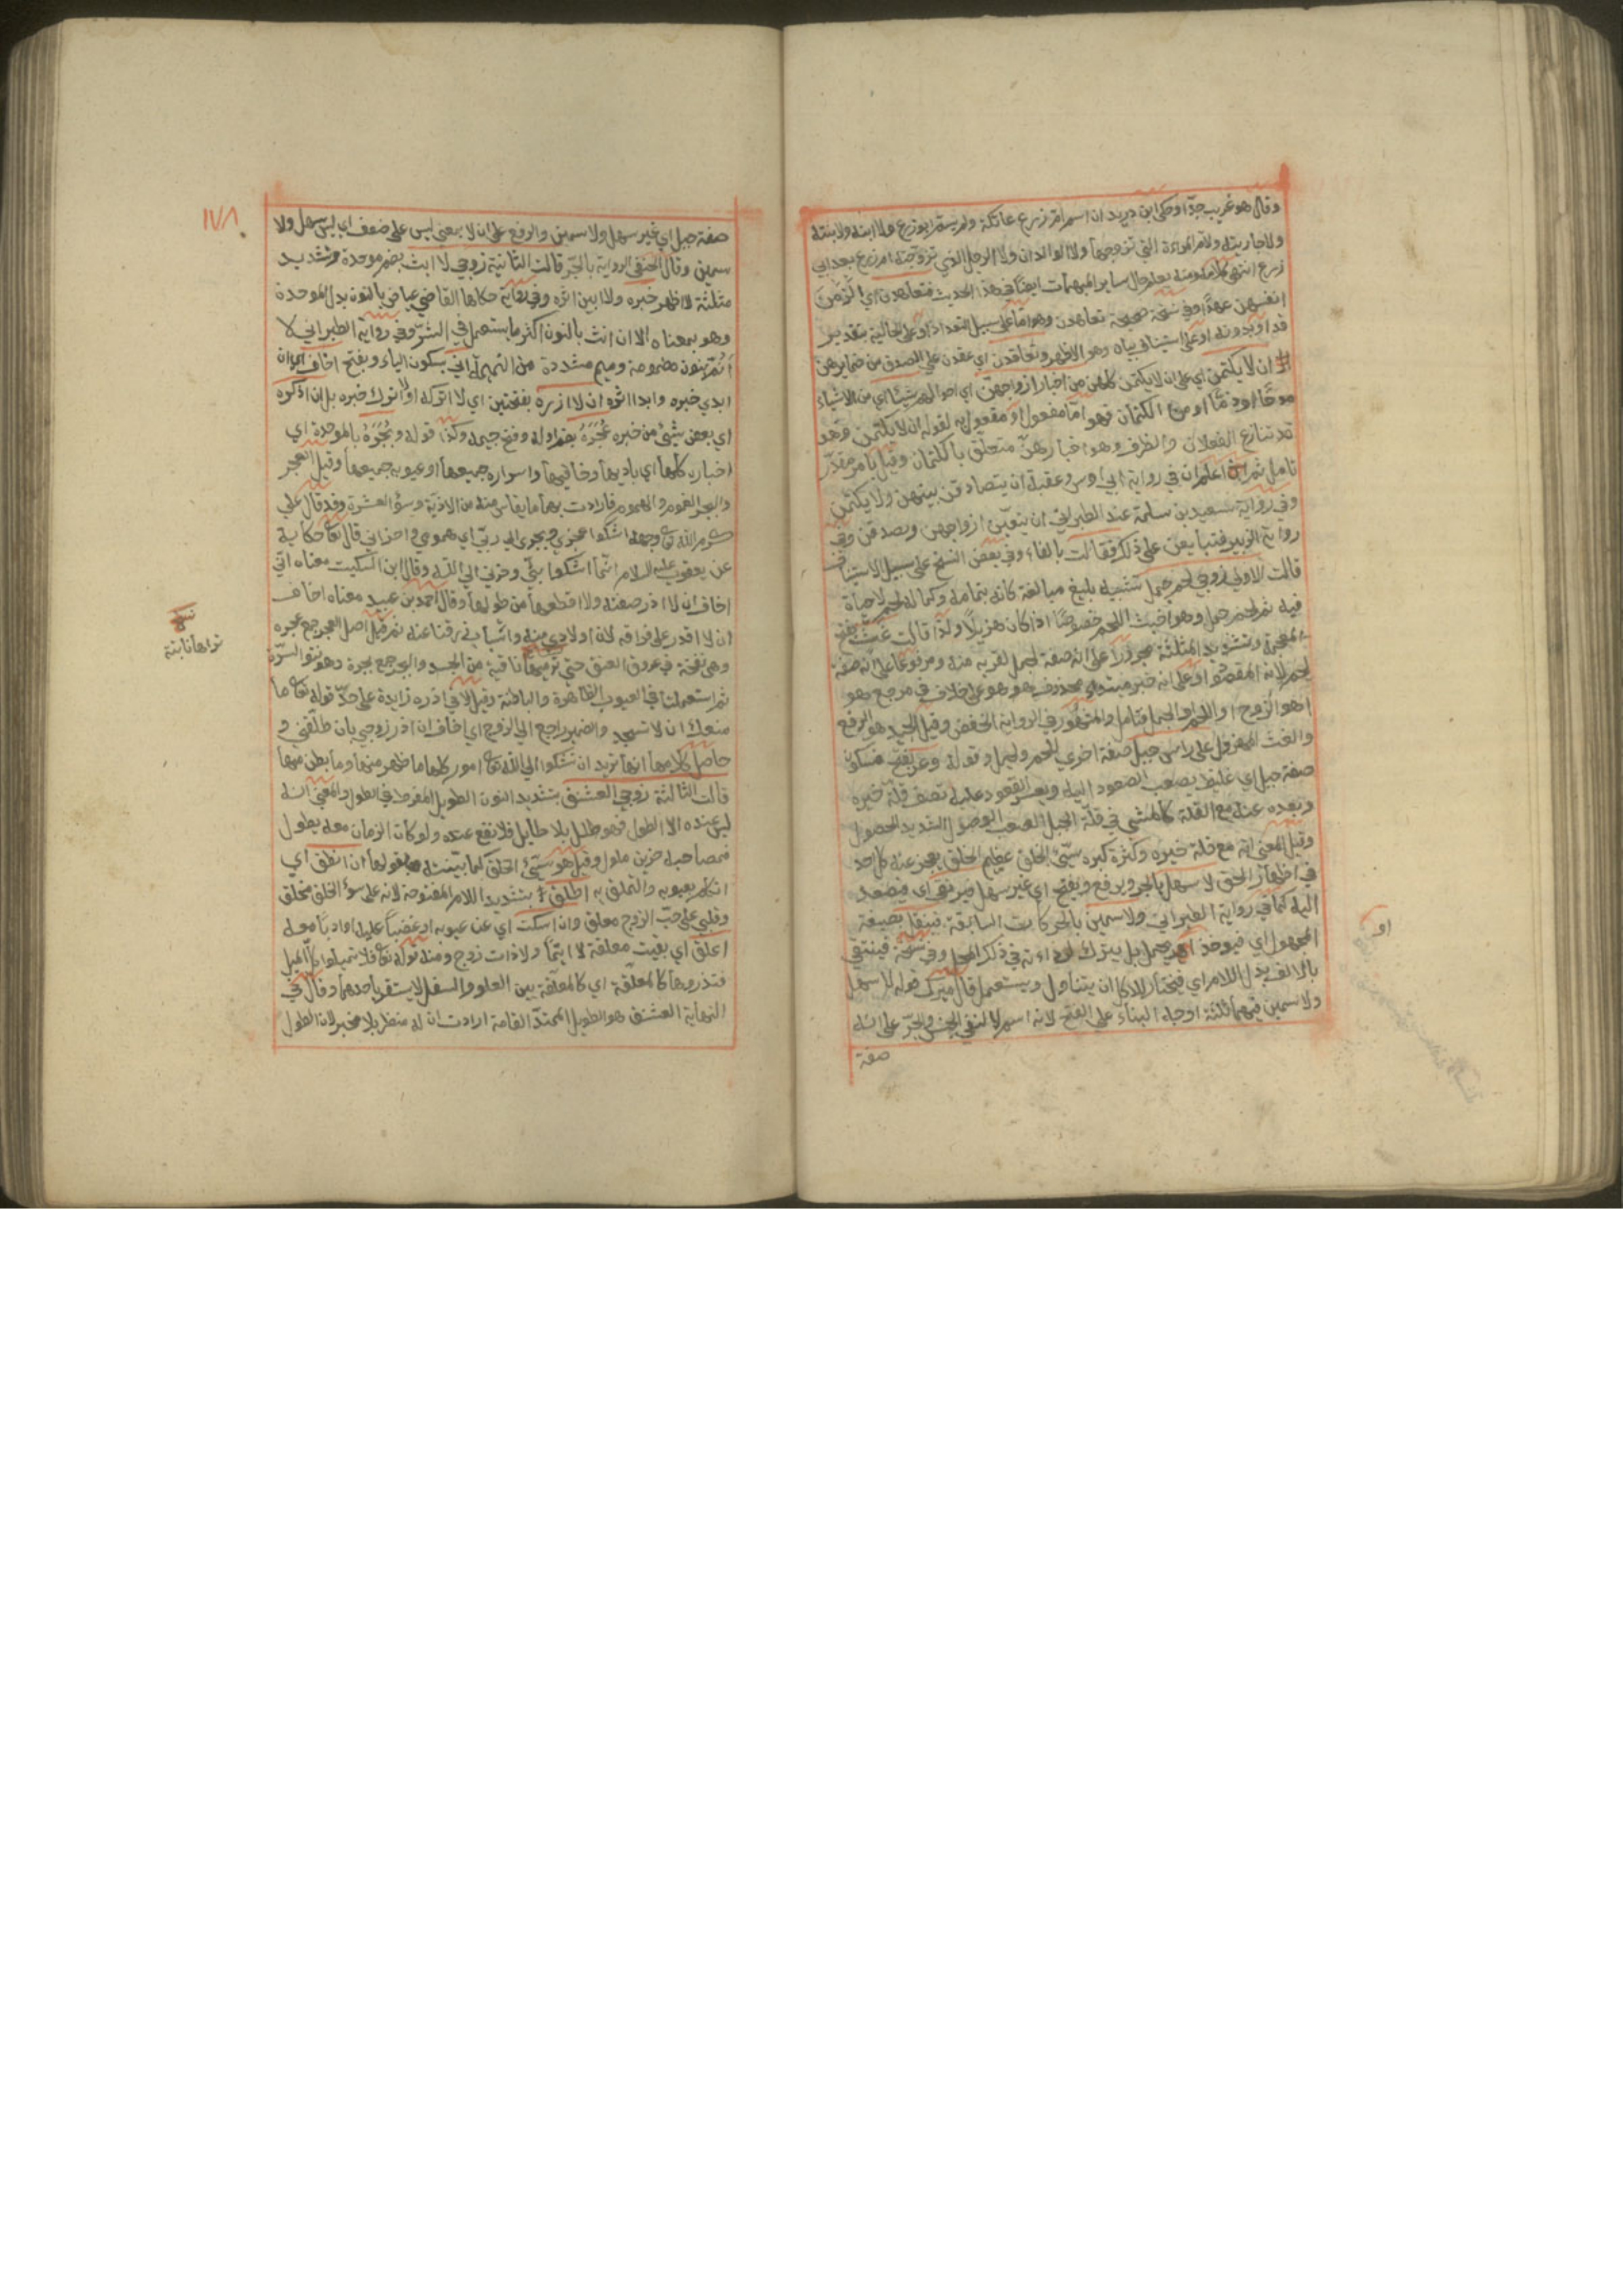 وقال هو غريب جدّا وحكى ابن دريد ان اسم ام زرع عاتكة ولم يسم ابو زرع ولا ابنه ولا بنته
ولا جاريته ولا المراة التي تزوجها ولا الوالدان ولا الرجل الذي تزوجته ام زرع بعد ابي
زرع انتهى كلامه ومنه يعلم حال ساير المبهمات ايضا في هذا الحديث فتعاهدن اي الزمن
انفسهن عهدا وفي نسخة صحيحة تعاهدن وهو اما على سبيل التعداد او على الحالية بتقدير
قد او بدونه او على استيناف بيان وهو الاظهر وتعاقدن اي عقدن على الصدق من ضمايرهن
ان لا يكتمن اي على ان لا يكتمن كلهن من اخبار ازواجهن اي احوالهم شيئا اي من الاشياء
مدحا او ذمّا او من الكتمان فهو امّا مفعول او مفعول به لقوله ان لا يكتمن وهو
تنازع الفعلان والظرف وهو اخبارهنّ متعلق بالكتمان وقيل بامر مقدّر
تامل ثم اعلم ان في رواية ابي اوس وعقبة ان يتصادقن بينهن ولا يكتمن
وفي رواية سعيد بن سلمة عند الطبراني ان ينعتن ازواجهن ويصدقن وفي
رواية الزبير فتبايعن على ذلك فقالت بالفاء وفي بعض النسخ على سبيل الاستيناف
قالت الاولى زوجي لحم جمل تشبيه بليغ مبالغة كانه بتمامه وكماله لحم لا حياة
فيه ثم لحم جمل وهو اخبث اللحم خصوصا اذا كان هزيلا ولذا قالت غث بفتح
المعجمة وتشديد المثلثة مجرورا على انه صفة لجمل لقربه منه ومرفوعا على انه صفة
لحم لانه المقصود او على انه خبر مبتدا محذوف هو هو على خلاف في مرجع هو
اهو الزوج او اللحم او الجمل فتامل والمشهور في الرواية الخفض وقيل الجيد هو الرفع
والغث المهزول على راس جبل صفة اخرى للحم او لجمل وقوله وعر بفتح فسكون
صفة جبل اي غليظ يصعب الصعود اليه ويعسر القعود عليه تصف قلة خيره
وبعده عنه مع القلة كالمشي في قلة الجبل الصعب الوصول الشديد الحصول
وقيل المعنى انه مع قلة خيره وكثرة كبره سيّئ الخلق عظيم الخلق يعجز عنه كل احد
في اظهار الحق لا سهل بالجر ويرفع ويفتح اي غير سهل فيرتقى اي فيصعد
اليه كما في رواية الطبراني ولا سمين بالحركات السابقة فينتقل بصيغة
المجهول اي فيوخذ فيحمل بل يترك لرداءته في ذلك المحل وفي نسخة فينتقى
بالالف بدل اللام اي فيختار للاكل ان يتناول ويستعمل قال ميرك قوله لا سهل
ولا سمين فيهما ثلثة اوجه البناء على الفتح لانه اسم لا لنفي الجنس والجرّ على انه
صفة
او
١٧٨
صفة جبل اي غير سهل ولا سمين والرفع على ان لا بمعنى ليس على ضعف اي ليس سهل ولا
سمين وقال الحنفي الرواية بالجرّ قالت الثانية زوجي لا ابث بضم موحدة وتشديد
مثلثة لا اظهر خبره ولا ابين اثره وفي رواية حكاها القاضي عياض بالنون بدل الموحدة
وهو بمعناه الا ان انث بالنون اكثر ما يستعمل في الشرّ وفي رواية الطبراني لا
انمّ بنون مضمومة وميم مشددة من النميمة اني بسكون الياء وبفتح اخاف ان
ابدي خبره وابدا اثره ان لا اذره بفتحتين اي لا اتركه او لا اترك خبره بل ان اذكره
اي بعض شيئ من خبره عُجَرَهُ بضم اوله وفتح جيمه وكذا قوله وبُجَرَهُ بالموحدة اي
اخباره كلها اي باديها وخافيها واسراره جميعها او عيوبه جميعها وقيل العجر
والبجر الغموم والهموم فارادت بهما ما يقاس منه من الاذية وسوء العشرة وقد قال علي
كرم الله تعالى وجهه اشكو عجري وبجري الى ربّي اي همومي واحزاني قال تعالى حكاية
عن يعقوب عليه السلام انّما اشكوا بثّي وحزني الى الله وقال ابن السكيت معناه انّي
اخاف ان لا اذر صفته ولا اقطعها من طولها وقال احمد بن عبيد معناه اخاف
ان لا اقدر على فراقه لان اولادي منه واسباب رزقنا عنه ثم قيل اصل العجر جمع عجره
وهي نفخة في عروق العنق حتى تريها ناتية من الجسد والبجر جمع بجرة وهو نتو السرّة
ثم استعملتا في العيوب الظاهرة والباطنة وقيل لا في اذره زايدة على حدّ قوله تعالى ما
منعك ان لا تسجد والضمير راجع الى الزوج اي اخاف ان اذر زوجي بان طلّقني و
حاصل كلامها انها تريد ان تشكوا الى الله تعالى امور كلها ما ظهر منها وما بطن منها
قالت الثالثة زوجي العشنّق بتشديد النون الطويل المفرط في الطول والمعنى انه
ليس عنده الا الطول فهو طلل بلا طايل فلا نفع عنده ولو كان الزمان معه يطول
فمصاحبه حزين ملول وقيل هو سيّئ الخلق كما بيّنته بقولها ان انطق اي
اتكلم بعيوبه والتملق به اطلّق بتشديد اللام المفتوحة لانه على سوء الخلق مخلق
وقلبي على حبّ الزوج معلق وان اسكت اي عن عيوبه او غضبا عليه او ادبا معه
اعلّق اي بقيت معلقة لا ايّما ولا ذات زوج ومنه قوله تعالى فلا تميلوا كل الميل
فتذروها كالمعلّقة اي كالمعلّقة بين العلو والسفل لا يستقر باحدهما وقال في
النهاية العشنق هو الطويل الممتدّ القامة ارادت ان له منظر بلا مخبر لان الطول
نسخه
تراها ناتية